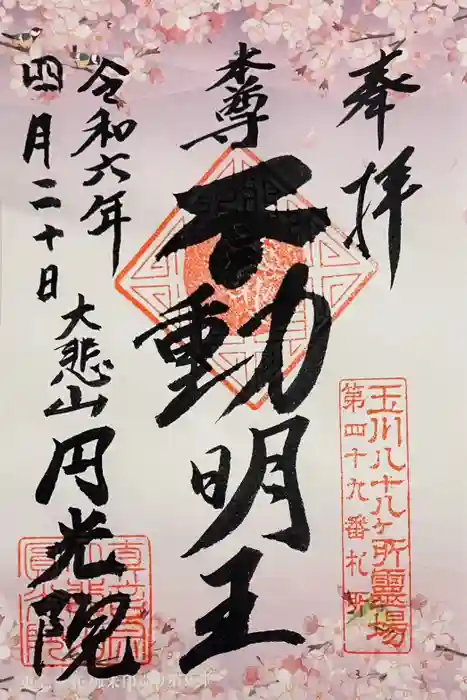 奉拝
玉川八十八ヶ所靈場
第四十九番札所
本尊
不動明王
令和六年
四月二十日
大悲山
円光院